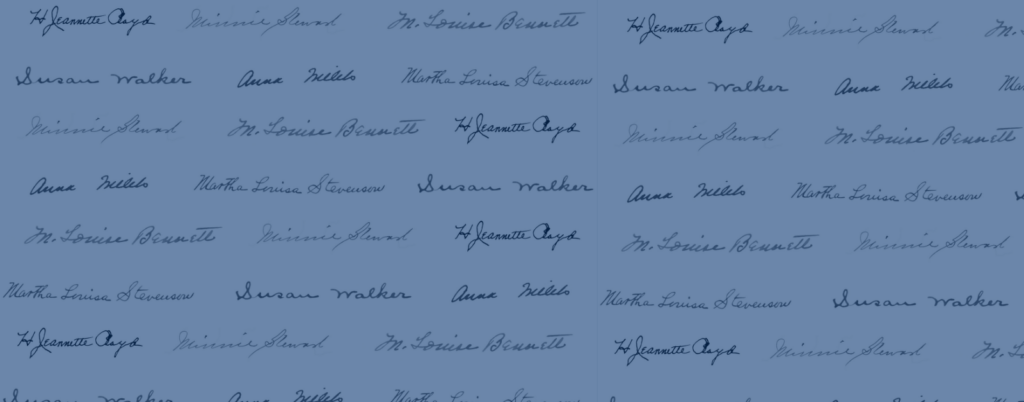 H Jeannette Lloyd Minnie Steward M. Louise Bennett H Jeannette Lloyd Minnie Steward M.
Susan Walker Anna Martha Louisa Stevenson Susan Walker Anna
Minnie Steward M. Louise Bennett H Jeannette Lloyd Minnie Steward M. Louise Bennett
Anna Martha Louisa Stevenson Susan Walker Anna Martha Louisa Stevenson
M. Louise Bennett Minnie Steward H Jeannette Lloyd M. Louise Bennett Minnie Steward
Martha Louisa Stevenson Susan Walker Anna Martha Louisa Stevenson Susan Walker
H Jeannette Lloyd Minnie Steward M. Louise Bennett H Jeannette Lloyd Minnie Steward
Susan Walker Anna Martha Louisa Stevenson